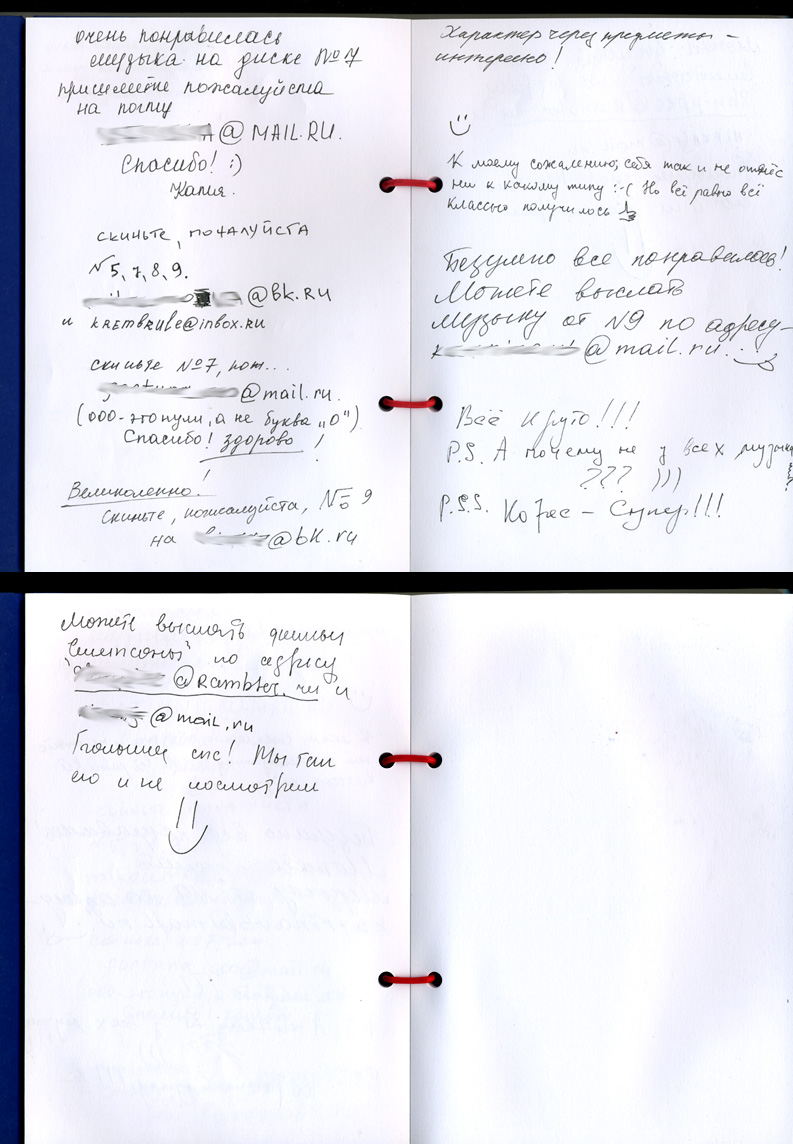 очень понравилась
музыка на диске №7
пришлите пожалуйста
на почту
@MAIL.RU.
Спасибо! :)
Капия.
скиньте, пожалуйста
№5, 7, 8, 9.
@bk.RU
и krembrule@inbox.ru
скиньте №7, пот...
@mail.ru.
(000-это нули, а не буква "О")
Спасибо! здорово!
Великолепно!
Скиньте, пожалуйста, № 9
на @bk.ru
Характер через предметы -
интересно!
К моему сожалению, себя так и не отнёс
ни к какому типу :-( Но всё равно всё
классно получилось
Безумно все понравилось!
Можете выслать
музыку от №9 по адресу-
@mail.ru.
Всё круто!!!
P.S. А почему не у всех музыка
??? )))
P.S.S. Корес - Супер!!!
Можете выслать фильм
по адресу
@Rambler.ru и
@mail.ru
Большое спс! Мы так
его и не посмотрели